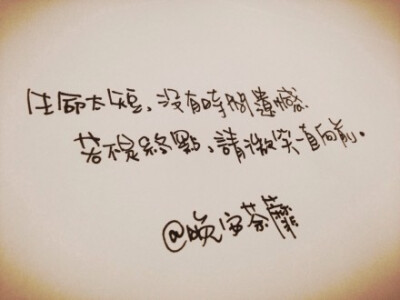 生命太短,沒有時間遺憾
若不是終點,請微笑一直向前。
@晚安荼蘼